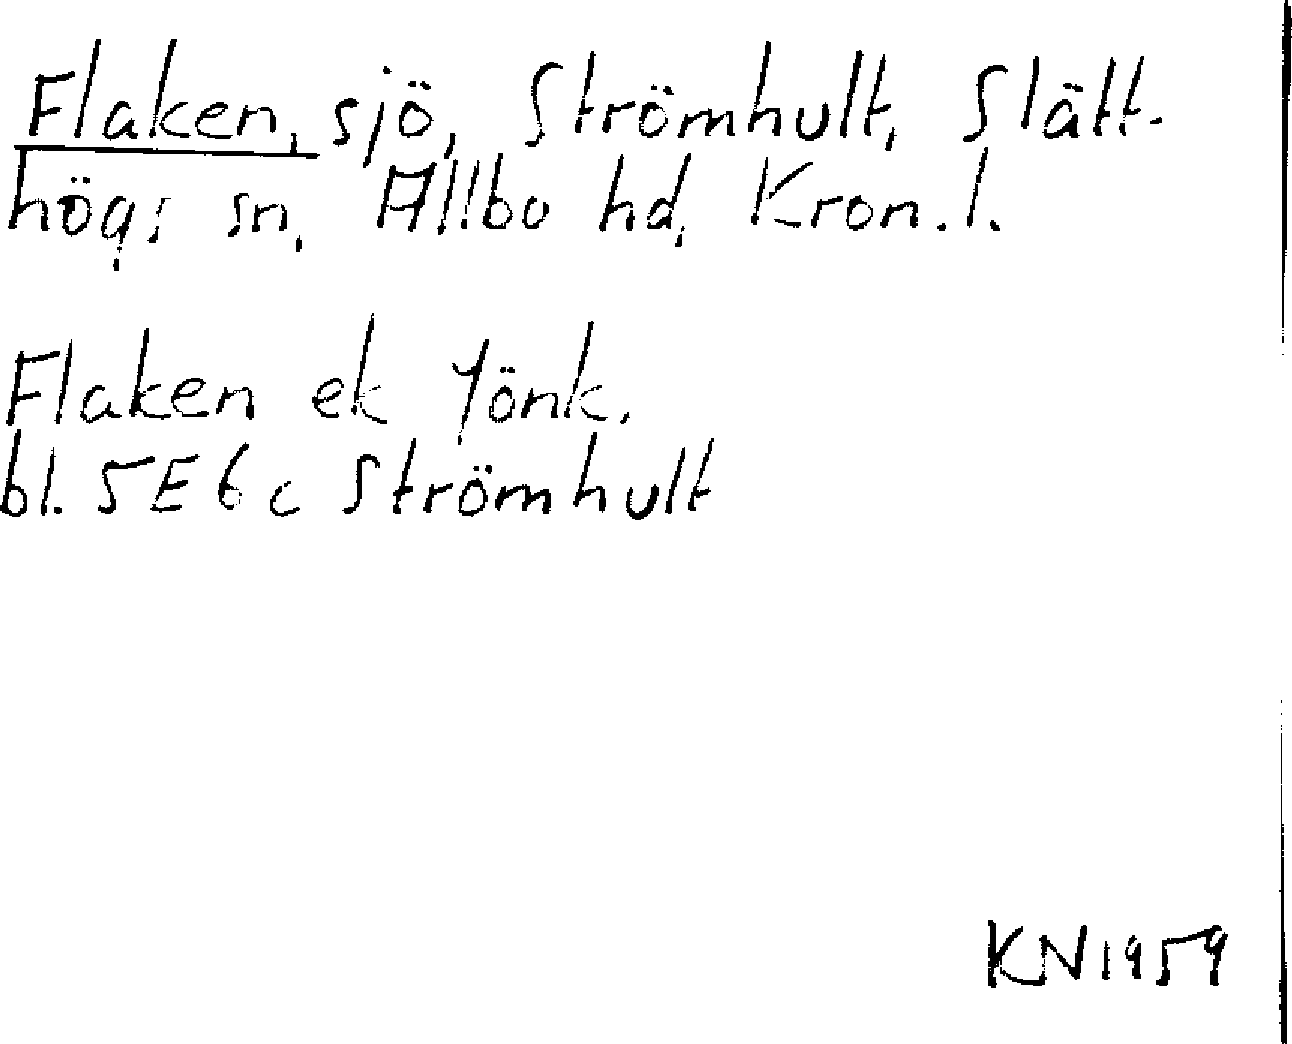 Flaken, sjö, Strömhult, Slätt-
högs sn, Allbo hd, Kron. l.
Flaken ek Jönk.
bl. 5E6c Strömhult
KN1959